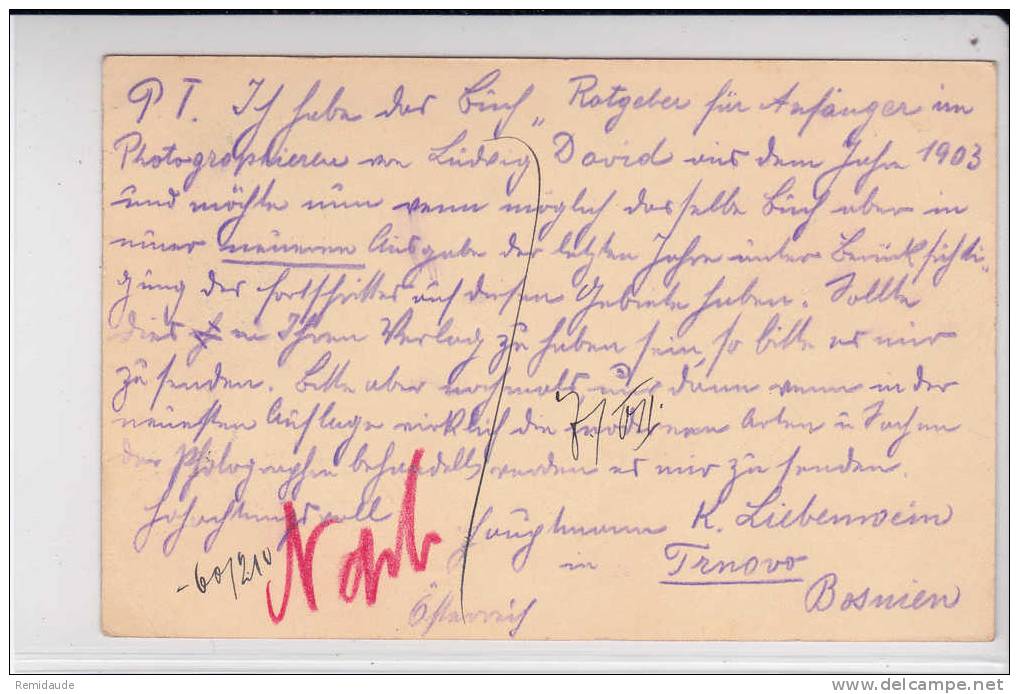 P. T. Ich habe das Buch „Ratgeber für Anfänger im
Photographieren von Ludwig David aus dem Jahre 1903
und möchte nun wenn möglich dasselbe Buch aber in
einer neueren Ausgabe der letzten Jahre unter Berücksichti-
gung des Fortschrittes auf diesem Gebiete haben. Sollte
dies in Ihrem Verlag zu haben sein, so bitte es mir
zu senden. Bitte aber nochmals, nur dann wenn in der
neuesten Auflage wirklich die modernen Arten u Sachen
der Photographie behandelt werden es mir zu senden.
Hochachtungsvoll
Hauptmann K. Liebenwein
in Trnovo
Bosnien
Österreich
-60/210
Remidaude
www.delcampe.net